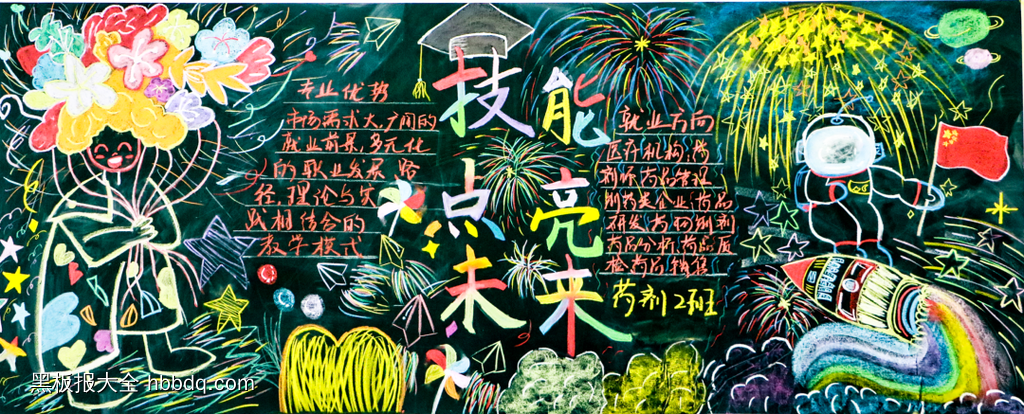 技能
点亮
未来
专业优势
市场需求大,广阔的
就业前景,多元化
的职业发展路
径,理论与实
践相结合的
教学模式
就业方向
医疗机构:药
剂师药品管理
制药类企业药品
研发,药物制剂
药品分析,药品质
检药店销售
药剂2班
黑板报大全 hbbdq.com